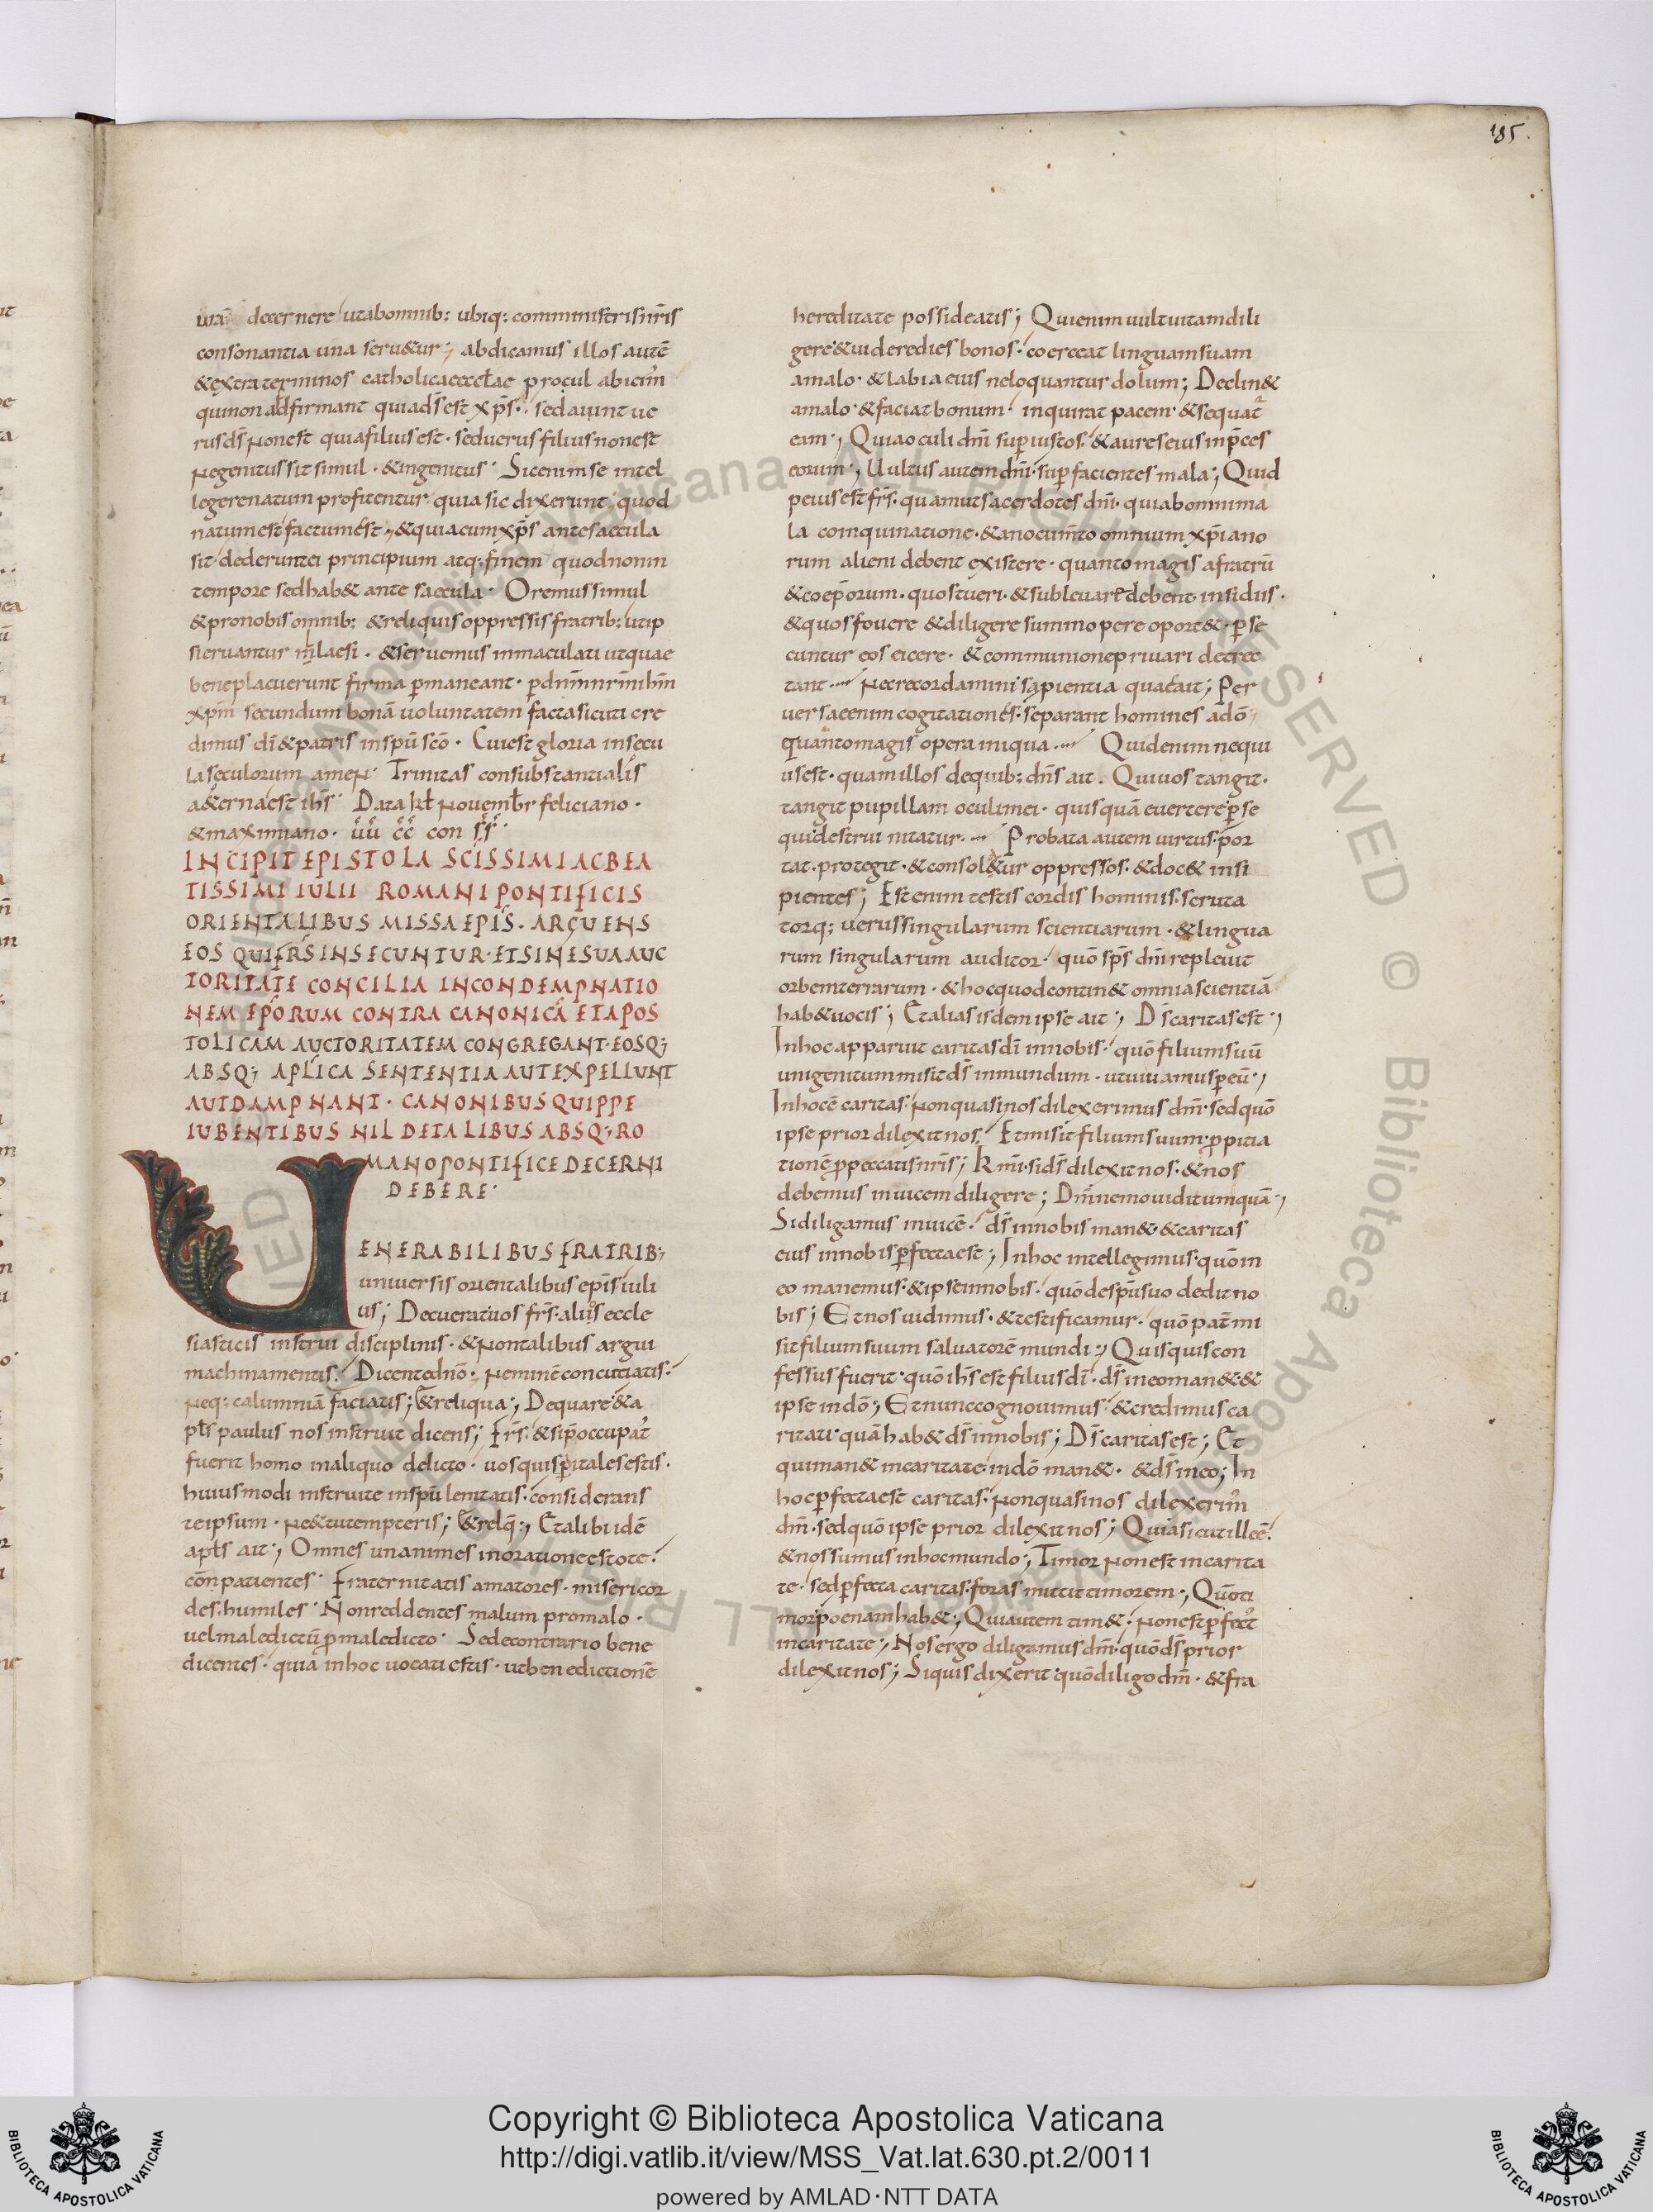 185.
decernere ut ab omnib: ubiq: comministris nr̄is
consonantia una seru&ur; abdicamus illos autē
& extra terminos catholicae eccl̄ae procul abicim̄
qui non adfirmant quia d̄s est xp̄s. sed aiunt ue
rus d̄s non est quia filius est. sed uerus filius non est
ne genitus sit simul. & ingenitus. Sic enim se intel
legere natum profitentur. quia sic dixerunt quod
natum est factum est, & quia cum xp̄s ante saecula
sit dederunt ei principium atq: finem quod non in
tempore sed hab& ante saecula. Oremus simul
& pro nobis omnib: & reliquis oppressis fratrib: ut ip
si eruantur inlaesi. & seruemus inmaculati ut quae
bene placuerunt firma p̄maneant. p̄ dn̄m nr̄m ih̄m
xp̄m secundum bonā uoluntatem facta sicuti cre
dimus dī & patris in sp̄u sc̄o. Cui est gloria in secu
la seculorum amen. Trinitas consubstantialis
a&erna est ih̄s. Data kl̄ novemb̄r feliciano.
& maximiano. ūū c̄c̄ con s̄s̄.
INCIPIT EPISTOLA SC̄ISSIMI AC BEA
TISSIMI IULII ROMANI PONTIFICIS
ORIENTALIBUS MISSA EPĪS. ARGUENS
EOS QUI FR̄S INSECUNTUR. ET SINE SUA AUC
TORITATE CONCILIA IN CONDEMPNATIO
NEM EP̄ORUM CONTRA CANONICĀ ET APOS
TOLICAM AUCTORITATEM CONGREGANT. EOSQ;
ABSQ; AP̄LICA SENTENTIA AUT EXPELLUNT
AUT DAMPNANT. CANONIBUS QUIPPE
IUBENTIBUS NIL DE TALIBUS ABSQ; RO
MANO PONTIFICE DECERNI
DEBERE.
UENERABILIBUS FRATRIB;
uniuersis orientalibus ep̄is iuli
us; Decuerat uos fr̄s. aliis eccle
siasticis instrui disciplinis. & non talibus argui
machinamentis. Dicente dn̄o. neminē concutiatis.
neq: calumniā faciatis; & reliqua; De qua re & a
pl̄s paulus nos instruit dicens; Fr̄s. & si p̄occupat̄
fuerit homo in aliquo delicto. uos qui sp̄itales estis.
huiusmodi instruite in sp̄u lenitatis. considerans
te ipsum. ne & tu tempteris; & relq̄;, Et alibi idē
apl̄s ait;, Omnes unanimes in oratione estote.
cōnpatientes. fraternitatis amatores. misericor
des. humiles. Non reddentes malum pro malo.
uel maledictū p̄ maledicto. Sed e contrario bene
dicentes. quia in hoc uocati estis. ut benedictionē
hereditate possideatis; Qui enim uult uitam dili
gere & uidere dies bonos. coerceat linguam suam
a malo. & labia eius ne loquantur dolum; Declin&
a malo. & faciat bonum. inquirat pacem. & sequat̄
eam;, Quia oculi dn̄i sup̄ iustos. & aures eius in p̄ces
eorum;, Uultus autem dn̄i. sup̄ facientes mala; Quid
peius est fr̄s. quam ut sacerdotes dn̄i. qui ab omni ma
la coinquinatione. & a nocum̄to omnium xp̄iano
rum alieni debent existere. quanto magis a fratrū
& coep̄orum. quos tueri. & subleuare debent insidiis.
& quos fouere & diligere summopere oport&. p̄se
cuntur eos eicere. & communione priuari decrec
tant. Nec recordamini sapientia quae ait; Per
uersae enim cogitationes. separant homines a dō;
quanto magis opera iniqua. Quid enim nequi
us est. quam illos de quib: dn̄s ait. Qui uos tangit.
tangit pupillam oculi mei. quisquā euertere p̄se
qui destrui nitatur. Probata autem uirtus. por
tat. protegit. & consol&ur oppressos. & doc& insi
pientes; Est enim testis cordis hominis. scruta
torq; uerus singularum scientiarum. & lingua
rum singularum auditor. quō sp̄s dn̄i repleuit
orbem terrarum. & hoc quod contin& omnia scientiā
hab& uocis; Et alias isdem ipse ait;, D̄s caritas est;,
In hoc apparuit caritas dī in nobis. quō filium suū
unigenitum misit d̄s in mundum. ut uiuamus p̄ eū;,
In hoc ē caritas. non quasi nos dilexerimus dm̄. sed quō
ipse prior dilexit nos. Et misit filium suum p̄pitia
tionē p̄ peccatis nr̄is; Km̄i. si d̄s dilexit nos. & nos
debemus inuicem diligere; Dm̄ nemo uidit umquā;,
Si diligamus inuicē. d̄s in nobis man& & caritas
eius in nobis p̄fecta est; In hoc intellegimus. quō in
eo manemus. & ipse in nobis. quō de sp̄u suo dedit no
bis; Et nos uidimus. & testificamur. quō pat̄ mi
sit filium suum saluatorē mundi;, Quisquis con
fessus fuerit. quō ih̄s est filius dī. d̄s in eo man& &
ipse in dō;, Et nunc cognouimus. & credimus ca
ritati quā hab& d̄s in nobis; D̄s caritas est; Et
qui man& in caritate in dō man&. & d̄s in eo; In
hoc p̄fecta est caritas. non quasi nos dilexerim̄
dm̄. sed quō ipse prior dilexit nos; Quia sicut ille ē.
& nos sumus in hoc mundo;, Timor non est in carita
te. sed p̄fecta caritas. foras mittit timorem;, Quō ti
mor poenam hab&;, Qui autem tim&. non est p̄fect̄
in caritate;, Nos ergo diligamus dm̄. quō d̄s prior
dilexit nos; Si quis dixerit quō diligo dm̄. & fra
Copyright © Biblioteca Apostolica Vaticana
http://digi.vatlib.it/view/MSS_Vat.lat.630.pt.2/0011
powered by AMLAD·NTT DATA
BIBLIOTECA APOSTOLICA VATICANA
BIBLIOTECA APOSTOLICA VATICANA